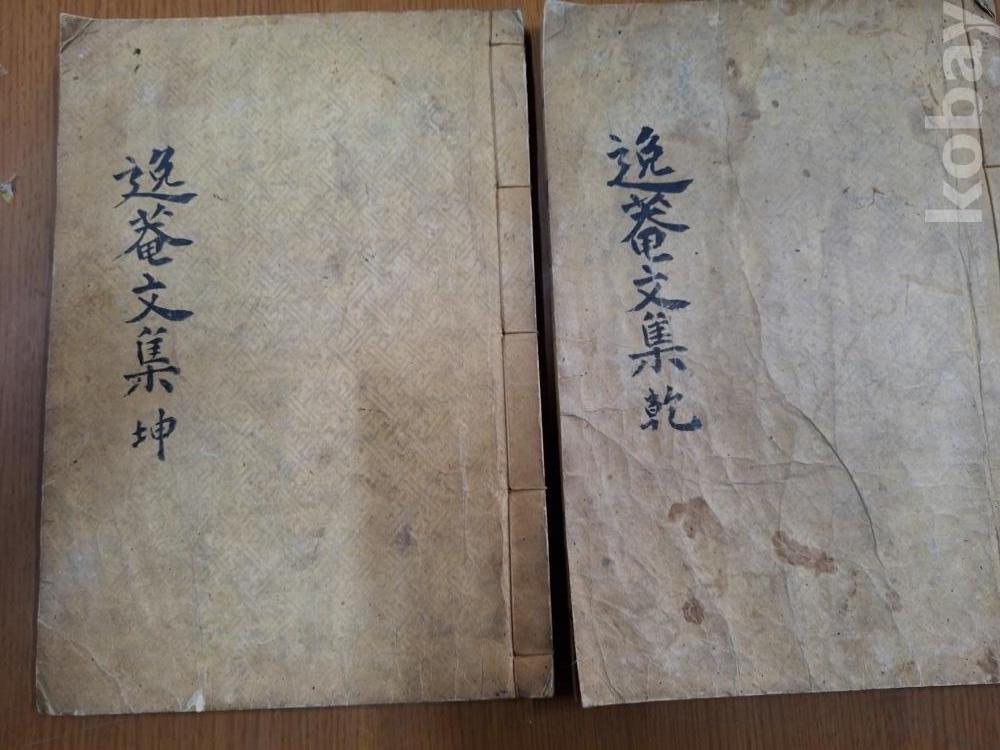 逸菴文集 坤
逸菴文集 乾
kobay